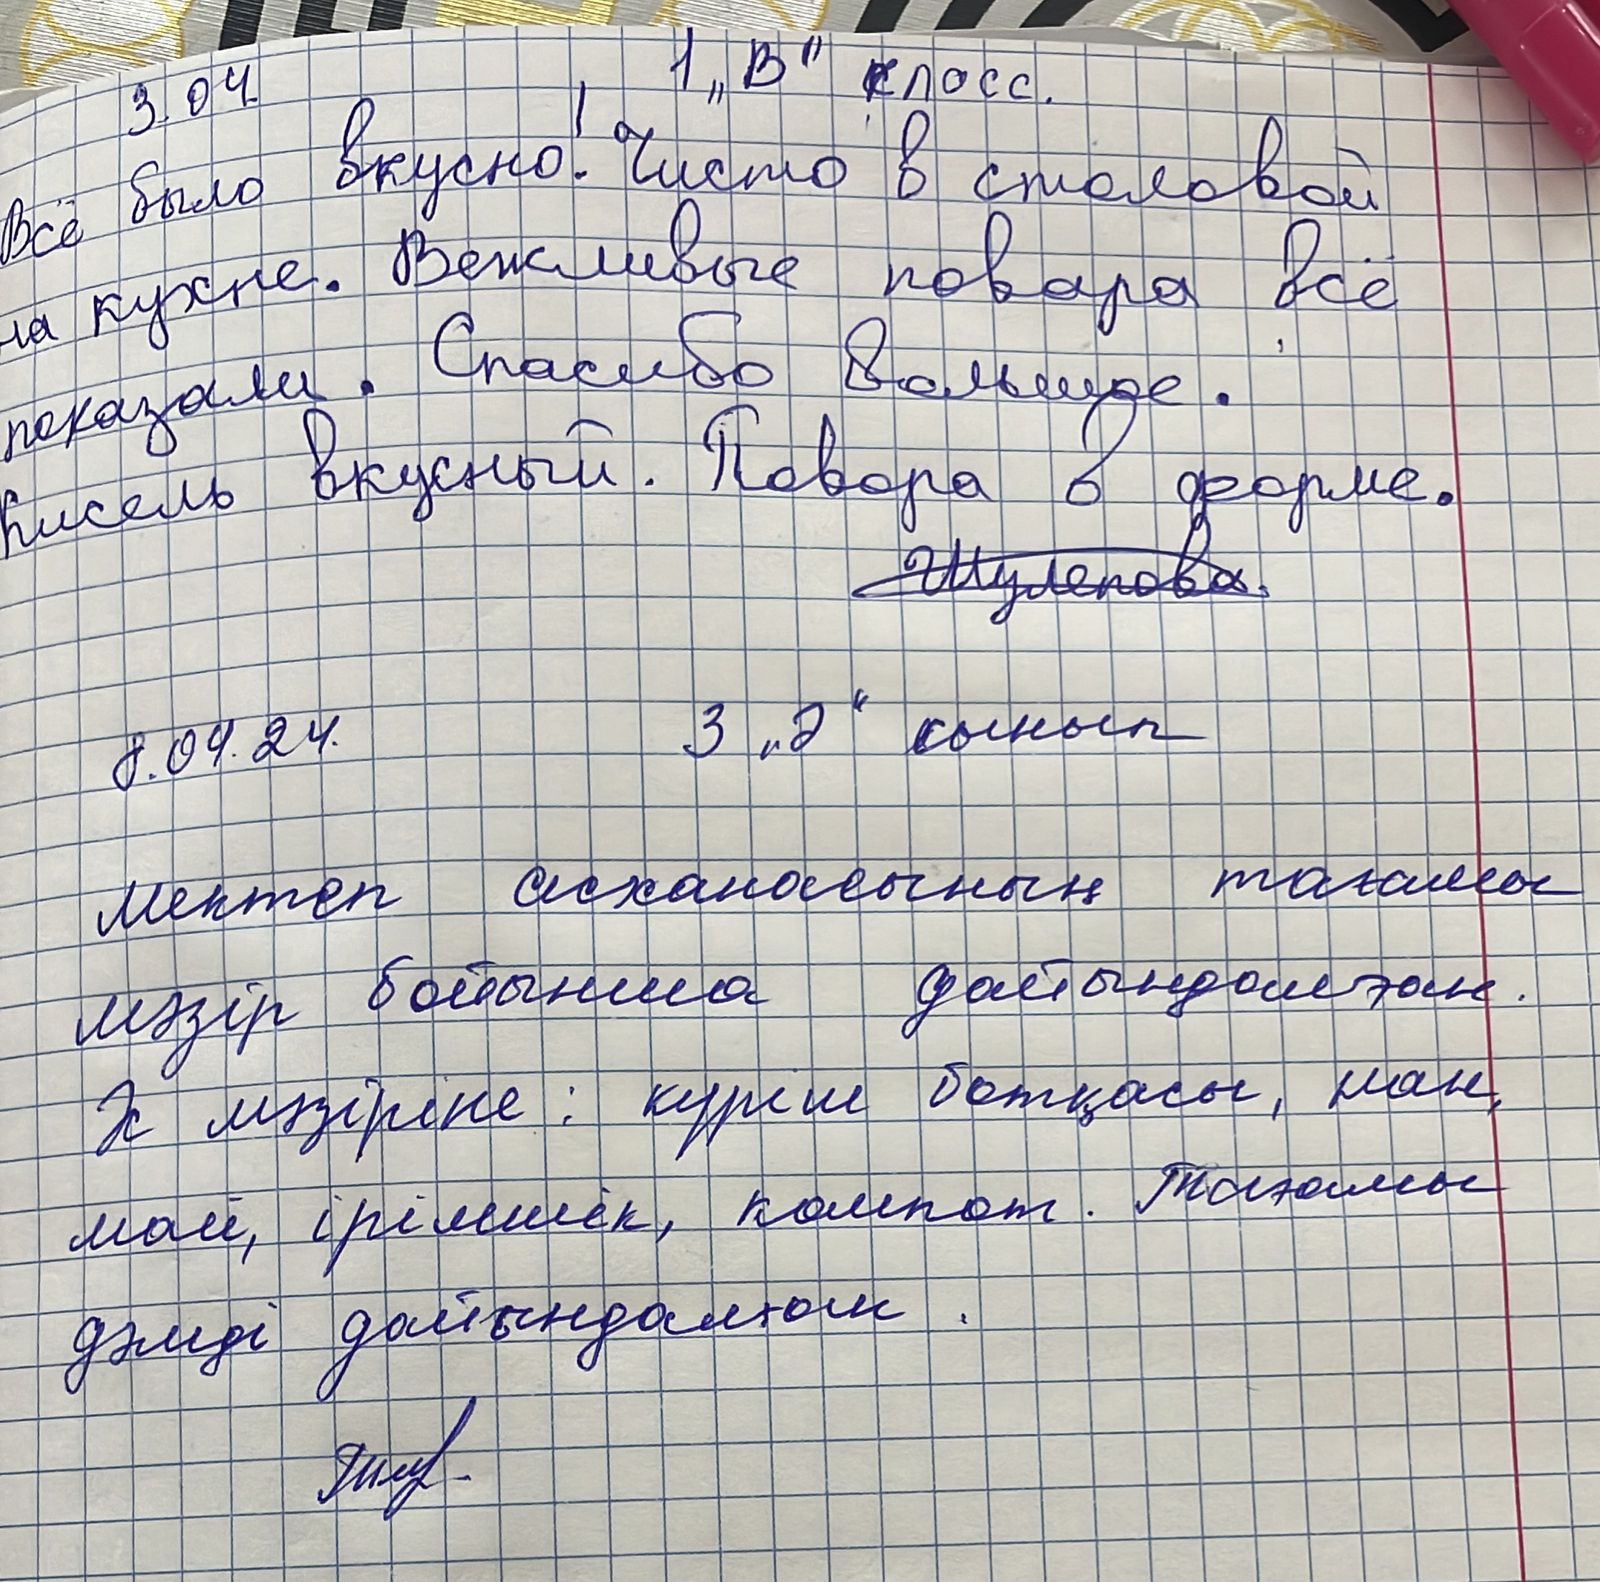 3.04. 1 „В" класс.
Всё было вкусно! Чисто в столовой
на кухне. Вежливые повара всё
показали. Спасибо большое.
Кисель вкусный. Повара в форме.
Шулепова.
8.04.24. 3 „Ә" сынып
Мектеп асханасының тағамы
мәзір бойынша дайындалған.
Ас мәзіріне: күріш ботқасы, нан,
май, ірімшік, компот. Тағамы
дәмді дайындалған.